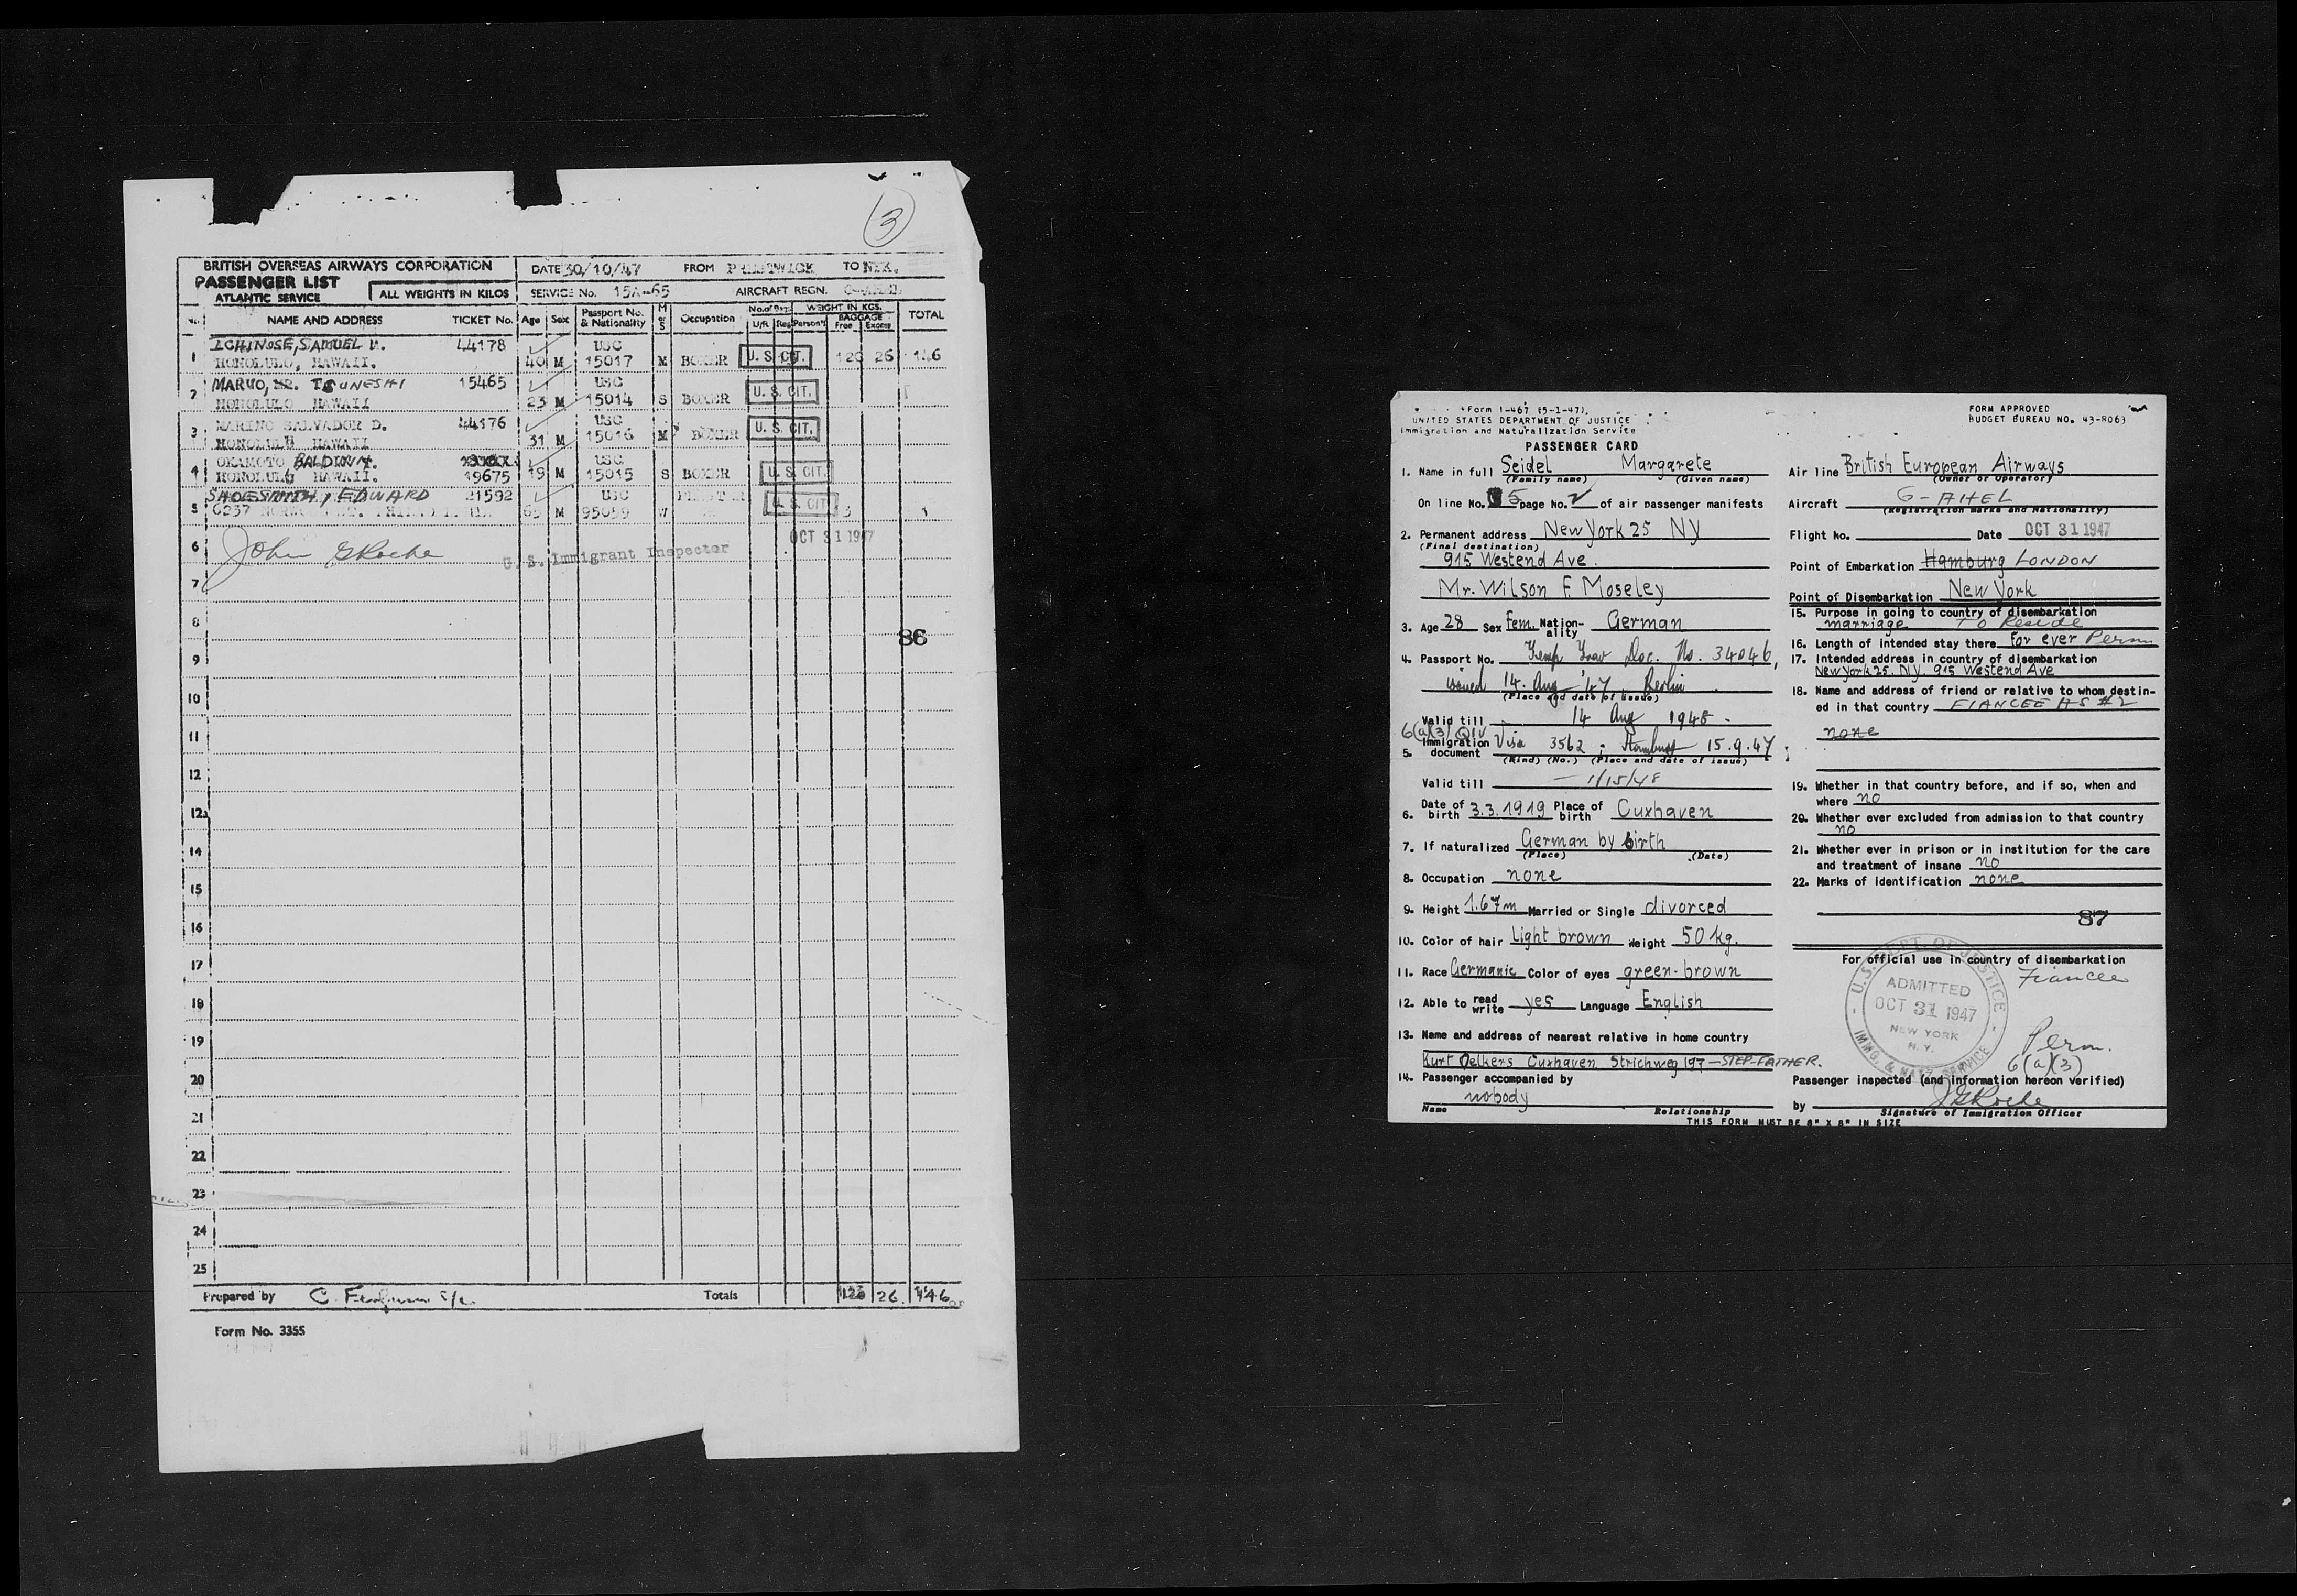 3
BRITISH OVERSEAS AIRWAYS CORPORATION
PASSENGER LIST
ATLANTIC SERVICE
ALL WEIGHTS IN KILOS
DATE 30/10/47 FROM PRESTWICK TO NYK.
SERVICE No. 15A-65 AIRCRAFT REGN.
No. NAME AND ADDRESS TICKET No. Age Sex Passport No. & Nationality M or S Occupation No. of Bags WEIGHT IN KGS. TOTAL
U/R Reg Person'l BAGGAGE Free Excess
1 ICHINOSE, SAMUEL 44178 USC
HONOLULU, HAWAII. 40 M 15017 M BOXER U. S. CIT. 120 26 146
2 MARUO, TSUNESHI 15465 USC
HONOLULU HAWAII 23 M 15014 S BOXER U. S. CIT.
3 MARINO SALVADOR D. 44176 USC
HONOLULU HAWAII 31 M 15016 M BOXER U. S. CIT.
4 OKAMOTO BALDWIN. USC
HONOLULU HAWAII. 19675 19 M 15015 S BOXER U. S. CIT.
5 SHOESMITH, EDWARD 21592 USC
6237 65 M 95059 W U. S. CIT.
6 John G Roche U. S. Immigrant Inspector OCT 31 1947
7
8
86
9
10
11
12
12
14
15
16
17
18
19
20
21
22
23
24
25
Prepared by C. Ferguson Totals 120 26. 146
Form No. 3355
Form I-467 (5-1-47)
UNITED STATES DEPARTMENT OF JUSTICE
Immigration and Naturalization Service
FORM APPROVED
BUDGET BUREAU NO. 43-R063
PASSENGER CARD
1. Name in full Seidel Margarete
(Family name) (Given name)
On line No. 5 page No. 2 of air passenger manifests
2. Permanent address New York 25 NY
(Final destination)
915 Westend Ave.
Mr. Wilson F. Moseley
3. Age 28 Sex Fem. Nation-ality German
4. Passport No. Temp Trav Doc. No. 34046,
issued 14. Aug '47 Berlin
(Place and date of issue)
Valid till 14 Aug 1948 -
6(a)(3) QIV
5. Immigration document Visa 3562 ; Hamburg 15.9.47 ;
(Kind) (No.) (Place and date of issue)
Valid till - 1/15/48
6. Date of birth 3.3.1919 Place of birth Cuxhaven
7. If naturalized German by birth
(Place) (Date)
8. Occupation none
9. Height 1.67m Married or Single divorced
10. Color of hair light brown Weight 50 kg.
11. Race Germanic Color of eyes green-brown
12. Able to read write yes Language English
13. Name and address of nearest relative in home country
Kurt Oelkers Cuxhaven Strichweg 197 - STEP-FATHER.
14. Passenger accompanied by
nobody
Name Relationship
Air line British European Airways
(Owner or Operator)
Aircraft G-AHEL
(Registration marks and Nationality)
Flight No. Date OCT 31 1947
Point of Embarkation Hamburg LONDON
Point of Disembarkation New York
15. Purpose in going to country of disembarkation
marriage TO Reside
16. Length of intended stay there for ever Perm
17. Intended address in country of disembarkation
New York 25. NY. 915 Westend Ave
18. Name and address of friend or relative to whom destin-
ed in that country FIANCEE AS #2
none
19. Whether in that country before, and if so, when and
where no
20. Whether ever excluded from admission to that country
no
21. Whether ever in prison or in institution for the care
and treatment of insane no
22. Marks of identification none
87
For official use in country of disembarkation
Fiancee
U.S. DEPT. OF JUSTICE
ADMITTED
OCT 31 1947
NEW YORK
N. Y.
IMMG. & NATZ. SERVICE
Perm.
6(a)(3)
Passenger inspected (and information hereon verified)
by J G Roche
Signature of Immigration Officer
THIS FORM MUST BE 8" X 8" IN SIZE